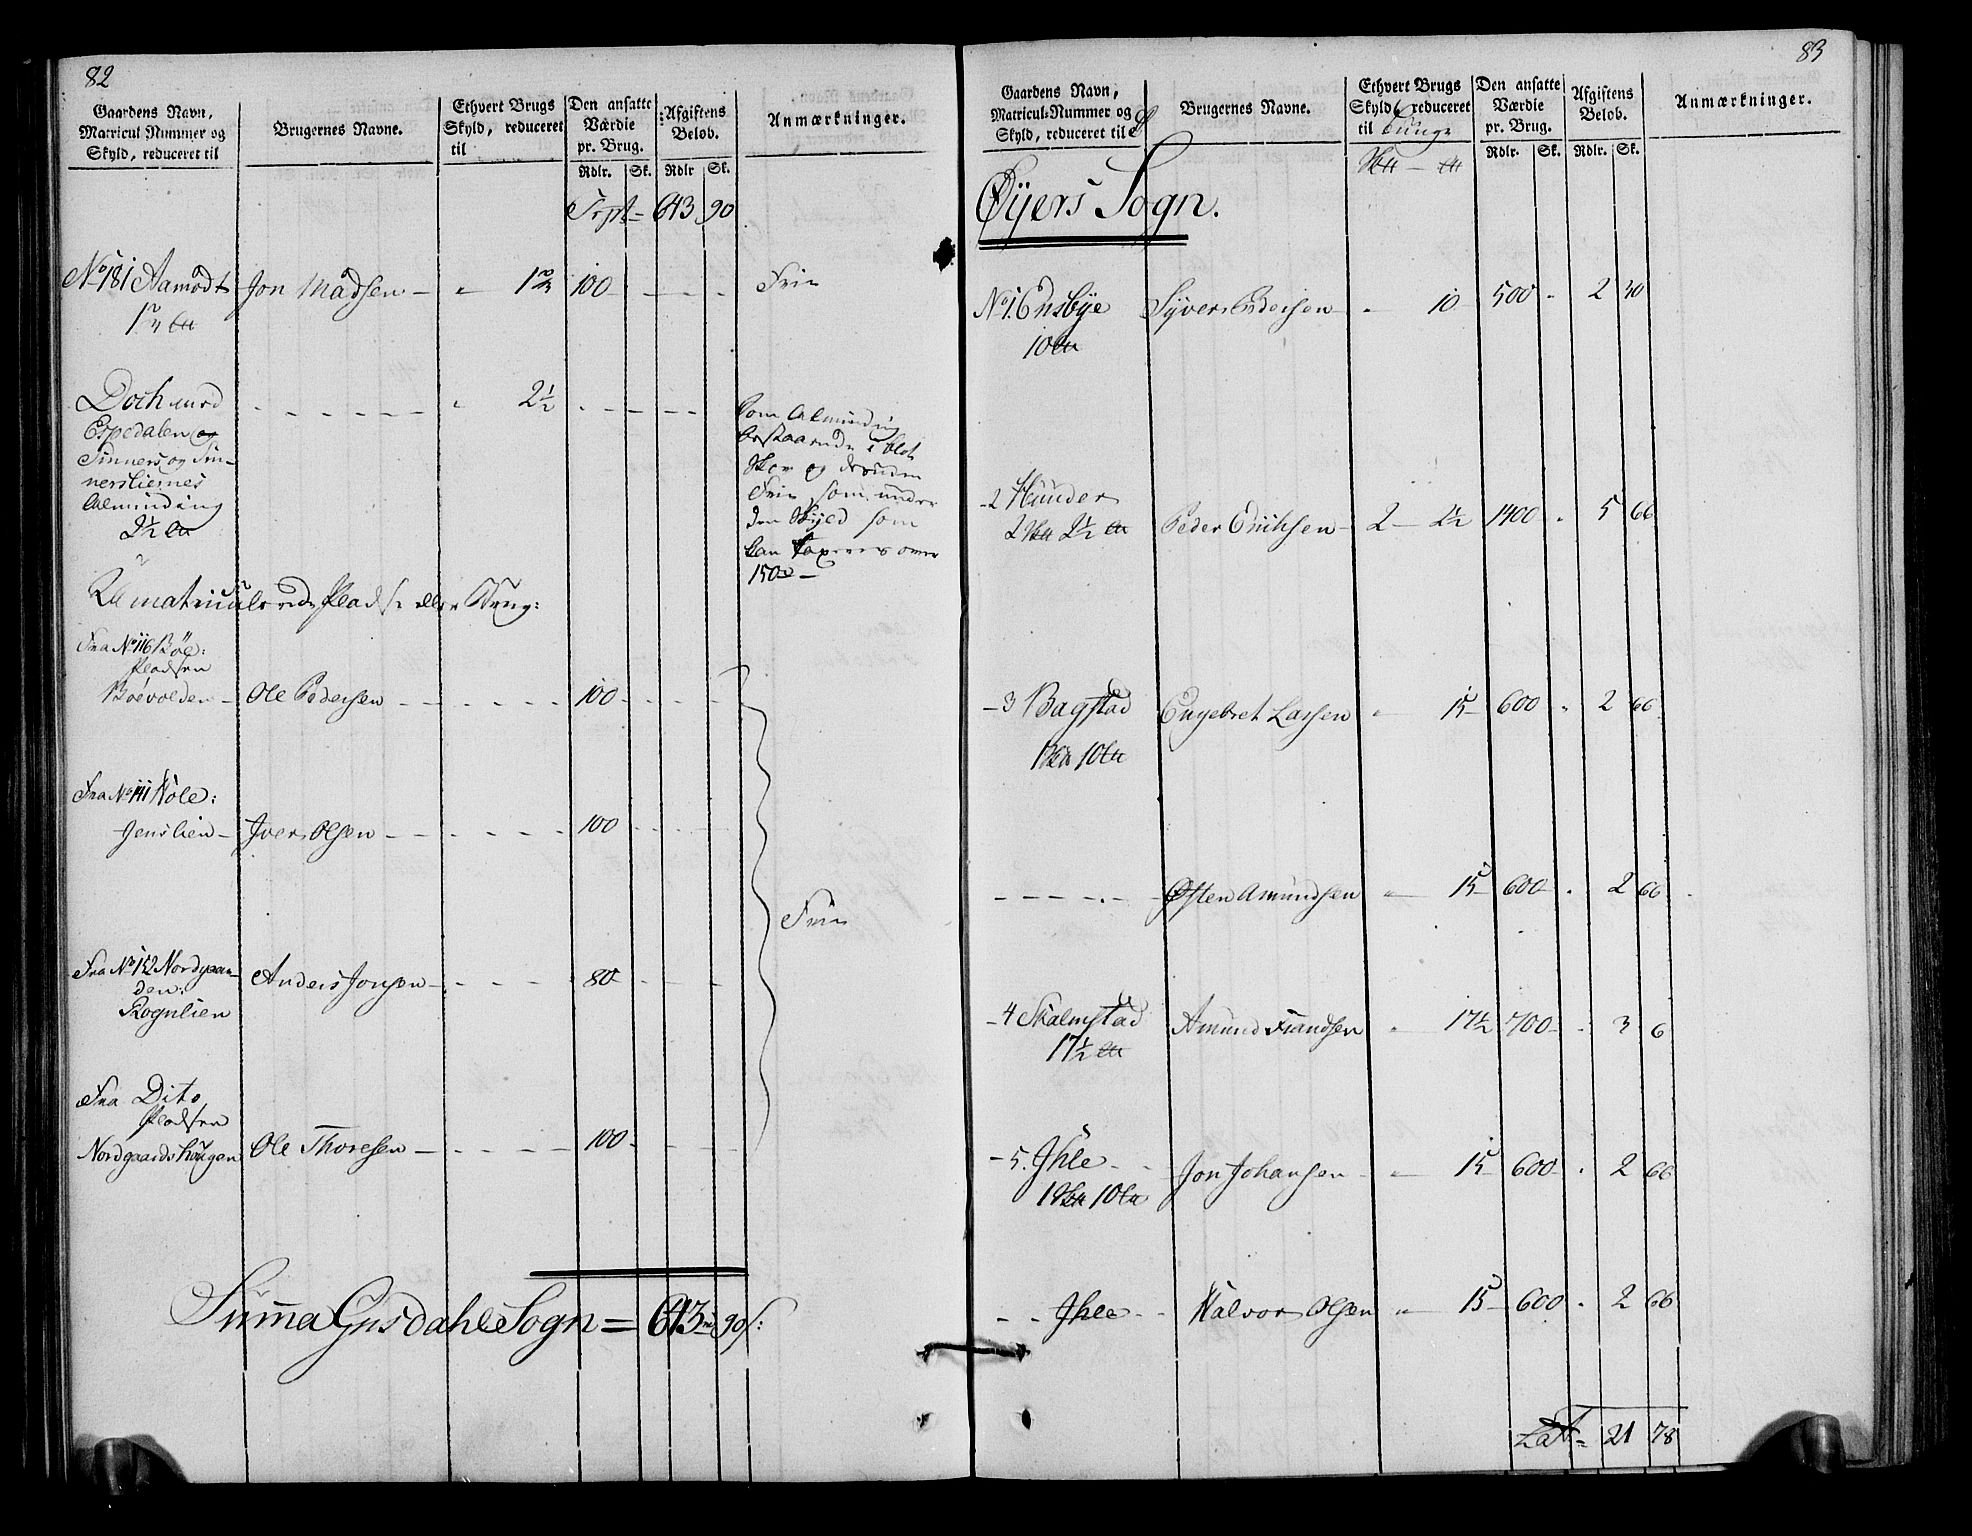 82
Gaardens Navn,
Matricul Nummer og
Skyld, reduceret til
Brugernes Navne.
Ethvert Brugs
Skyld, reduceret
til
Den ansatte
Værdie
pr. Brug.
Rdlr. Sk.
Afgiftens
Beløb.
Rdlr Sk.
Anmærkninger.
Trpt = 613 90
No 181 Aamodt Jon Madsen - " 1 2/3 100 - - - Frie
1 2/3
Doch med - - - - - " 2½ - - - - Som Alminding
Espedalen og
bestaaende i blot
Tinners og Tin-
Skov og desuden
nersliernes
Frie som under
Alminding
den Skyld som
2½
kan taxeres over
150
Umatriculerede Pladse eller Brug:
Fra No 116 Böe:
Pladsen
Böevolden - Ole Pedersen - - - - - 100 - - - -
Fra No 141 Hole:
Jenslien - Iver Olsen - - - - - 100 - - - -
Frie
Fra No 152 Nordgaar-
den: Anders Jonsen - - - - - 80 - - - -
Rognlien
Fra Dito
Pladsen
Nordgaardshougen Ole Thoresen - - - - - 100 - - -
Summa Gusdahls Sogn = 613 90 s:
83
Gaardens Navn,
Matricul-Nummer og
Skyld, reduceret til
Brugernes Navne.
Ethvert Brugs
Skyld, reduceret
til Tunge
Den ansatte
Værdie
pr. Brug.
Rdlr. Sk.
Afgiftens
Beløb.
Rdlr. Sk.
Anmærkninger.
Øyers Sogn.
No 1. Ensbye Syver Pedersen - " 10 500 " 2 30
10
- 2 Hunder
2 2½ Peder Erichsen - 2 - 2½ 1400 " 5 66
- 3 Bagstad Engebret Larsen " 15 600 " 2 66
1 10
- - - - - Østen Amundsen " 15 600 " 2 66
- 4 Skalmstad Amund Frandsen " 17½ 700 - 3 6
17½
- 5. Ihle - - Jon Johansen - " 15 600 " 2 66
1 10
- - Ihle - - Halvor Olsen " 15 600 " 2 66
Lat = 21 78